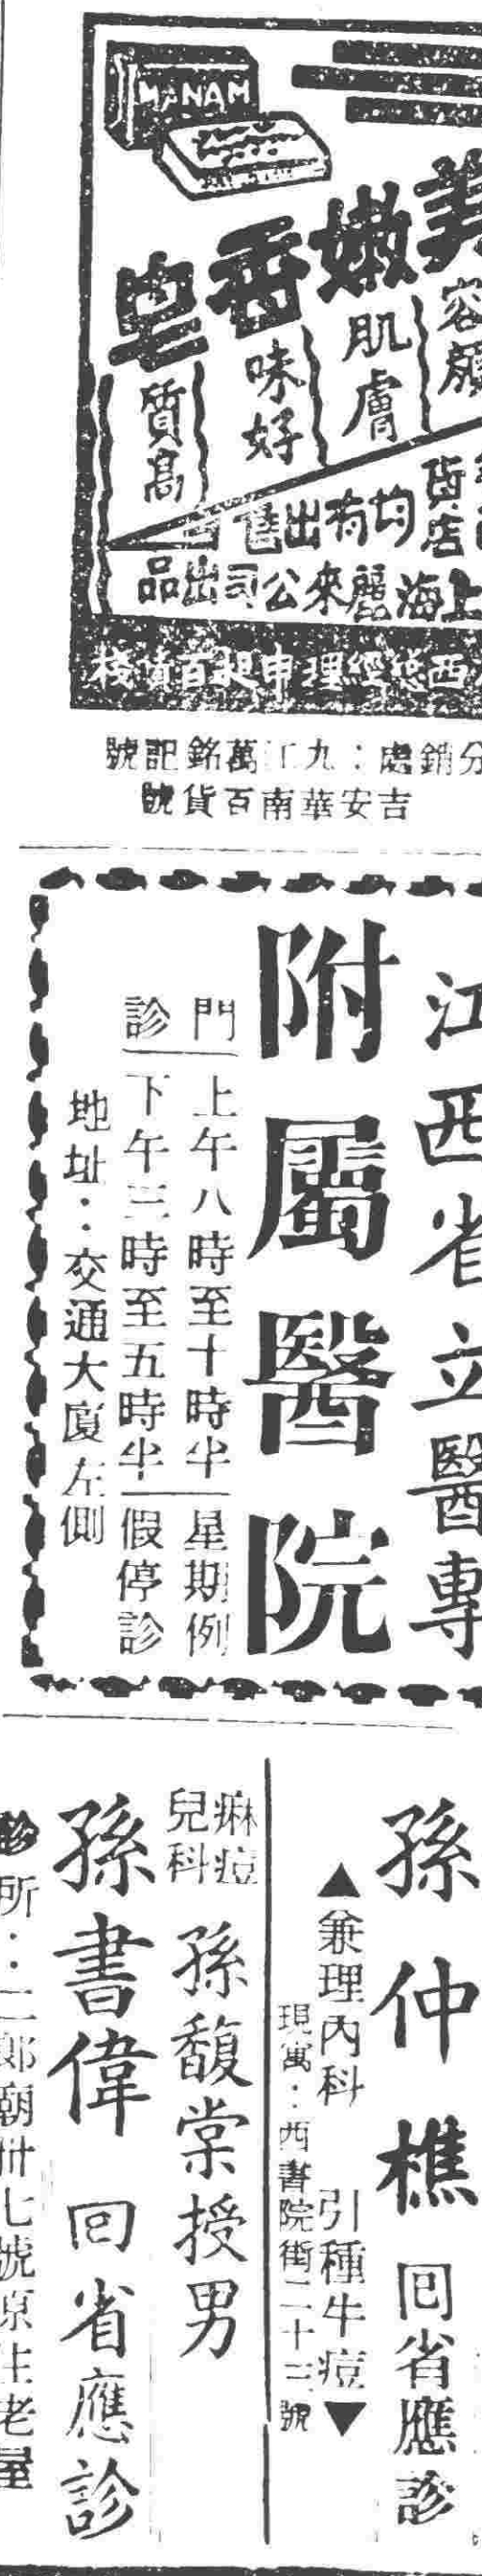 MANAM
美嫩香皂
容顏
肌膚
味好
質高
貨店
均有出售
上海麗來公司出品
西總經理申昶百貨棧
分銷處：九江萬銘記號
吉安華南百貨號
江西省立醫專
附屬醫院
門診
上午八時至十時半
下午三時至五時半
星期例
假停診
地址：交通大廈左側
孫仲樵回省應診
▲兼理內科 引種牛痘▼
現寓：西書院街二十三號
痳痘
兒科
孫馥棠授男
孫書偉回省應診
診所：二郎廟卅七號原住老屋